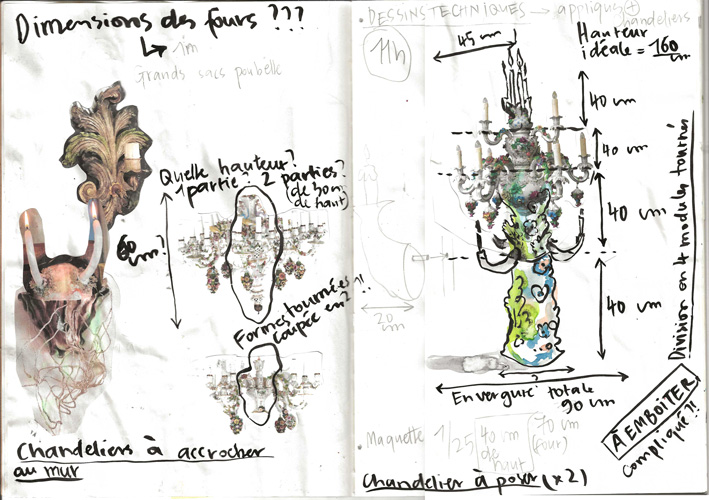 Dimensions des fours ???
↳ 1m
Grands sacs poubelle
Quelle hauteur?
1 partie? 2 parties?
(de bon de haut)
60 cm?
Formes tournées
coupée en 2 ?!
Chandeliers à accrocher
au mur
. DESSINS TECHNIQUES → appliques +
chandeliers
11h
45 cm
Hauteur
idéale = 160
cm
40 cm
40 cm
40 cm
40 cm
Division en 4 modules tournés
20
cm
?
Envergure totale
90 cm
À EMBOITER
compliqué?!
. Maquette 1/25
40 cm
de
haut
70 cm
(four)
Chandelier à poser (x2)